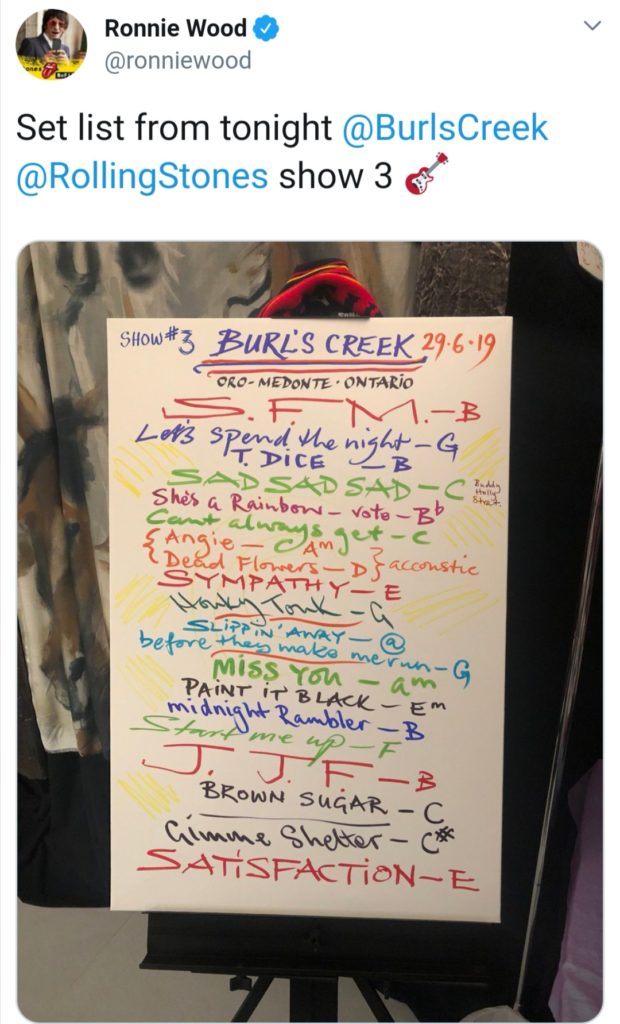 Ronnie Wood
@ronniewood
Set list from tonight @BurlsCreek
@RollingStones show 3
SHOW #3 BURL'S CREEK 29·6·19
ORO-MEDONTE·ONTARIO
S.F.M.-B
Let's spend the night-G
T. DICE -B
SAD SAD SAD-C Buddy Holly Strat.
She's a Rainbow-vote-Bb
Cant always get-C
{Angie-Am
{Dead Flowers-D} accoustic
SYMPATHY-E
Honky Tonk-G
SLIPPIN' AWAY-@
before they make me run-G
MISS YOU - am
PAINT iT BLACK-Em
midnight Rambler-B
Start me up-F
J. J. F-B
BROWN SUGAR-C
Gimme Shelter-C#
SATiSFACTiON-E